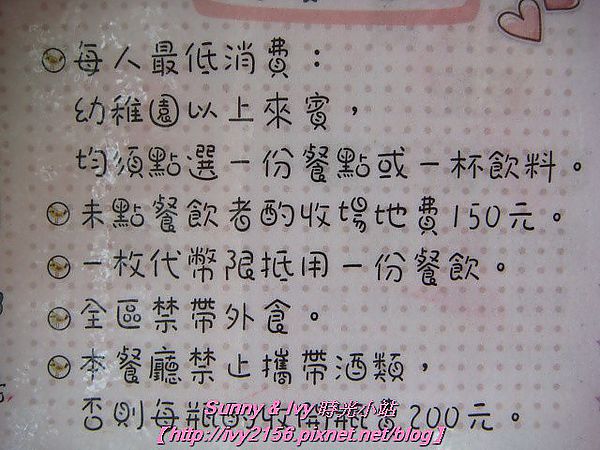 每人最低消費：
幼稚園以上來賓，
均須點選一份餐點或一杯飲料。
未點餐飲者酌收場地費150元。
一枚代幣限抵用一份餐飲。
全區禁帶外食。
本餐廳禁止攜帶酒類，
否則每瓶酌收開瓶費200元。
Sunny & Ivy 時光小站
【http://ivy2156.pixnet.net/blog】